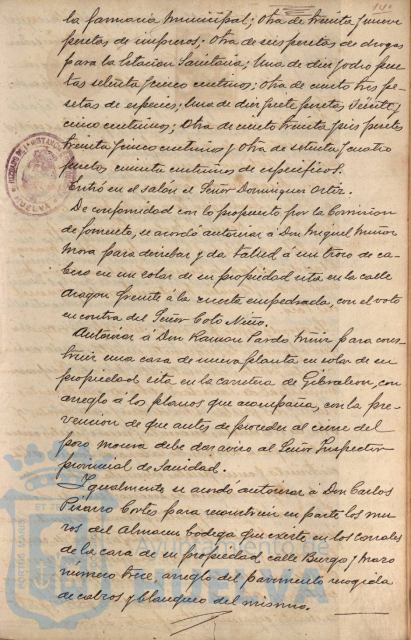 la farmacia Municipal; Otra de treinta y nueve
pesetas de impresos. Otra de seis pesetas de drogas
para la Estacion Sanitaria; Una de diez y ocho pese-
tas setenta y cinco centimos; Otra de ciento tres pe-
setas de especies; Una de diez y siete pesetas veinte y
cinco centimos; Otra de ciento treinta y seis pesetas
treinta y cinco centimos y Otra de setenta y cuatro
pesetas cincuenta centimos de especificos.
Entró en el salon el Señor Dominguez Ortiz.
De conformidad con lo propuesto por la Comision
de fomento, se acordó autorizar á Don Miguel Muñoz
Mora para derribar y da salud á un trozo de ca-
en un solar de su propiedad sita en la calle
Aragon frente á la cuesta empedrada, con el voto
en contra del Señor Coto Niño.
Autorizar á Don Ramon Pardo para cons-
truir una casa de nueva planta en solar de su
propiedad sita en la carretera de Gibraleon, con
arreglo á los planos que acompaña, con la pre-
vencion de que antes de proceder al cierre del
pozo debe dar aviso al Señor Inspector
provincial de Sanidad.
Igualmente se acordó autorizar á Don Carlos
Pizarro Cortes para reconstruir en parte los mu-
ros del Almacen bodega que existe en los corrales
de la casa de su propiedad calle Burgo y Mazo
número trece, arreglo del pavimento
de y blanqueo del mismo.
HUELVA